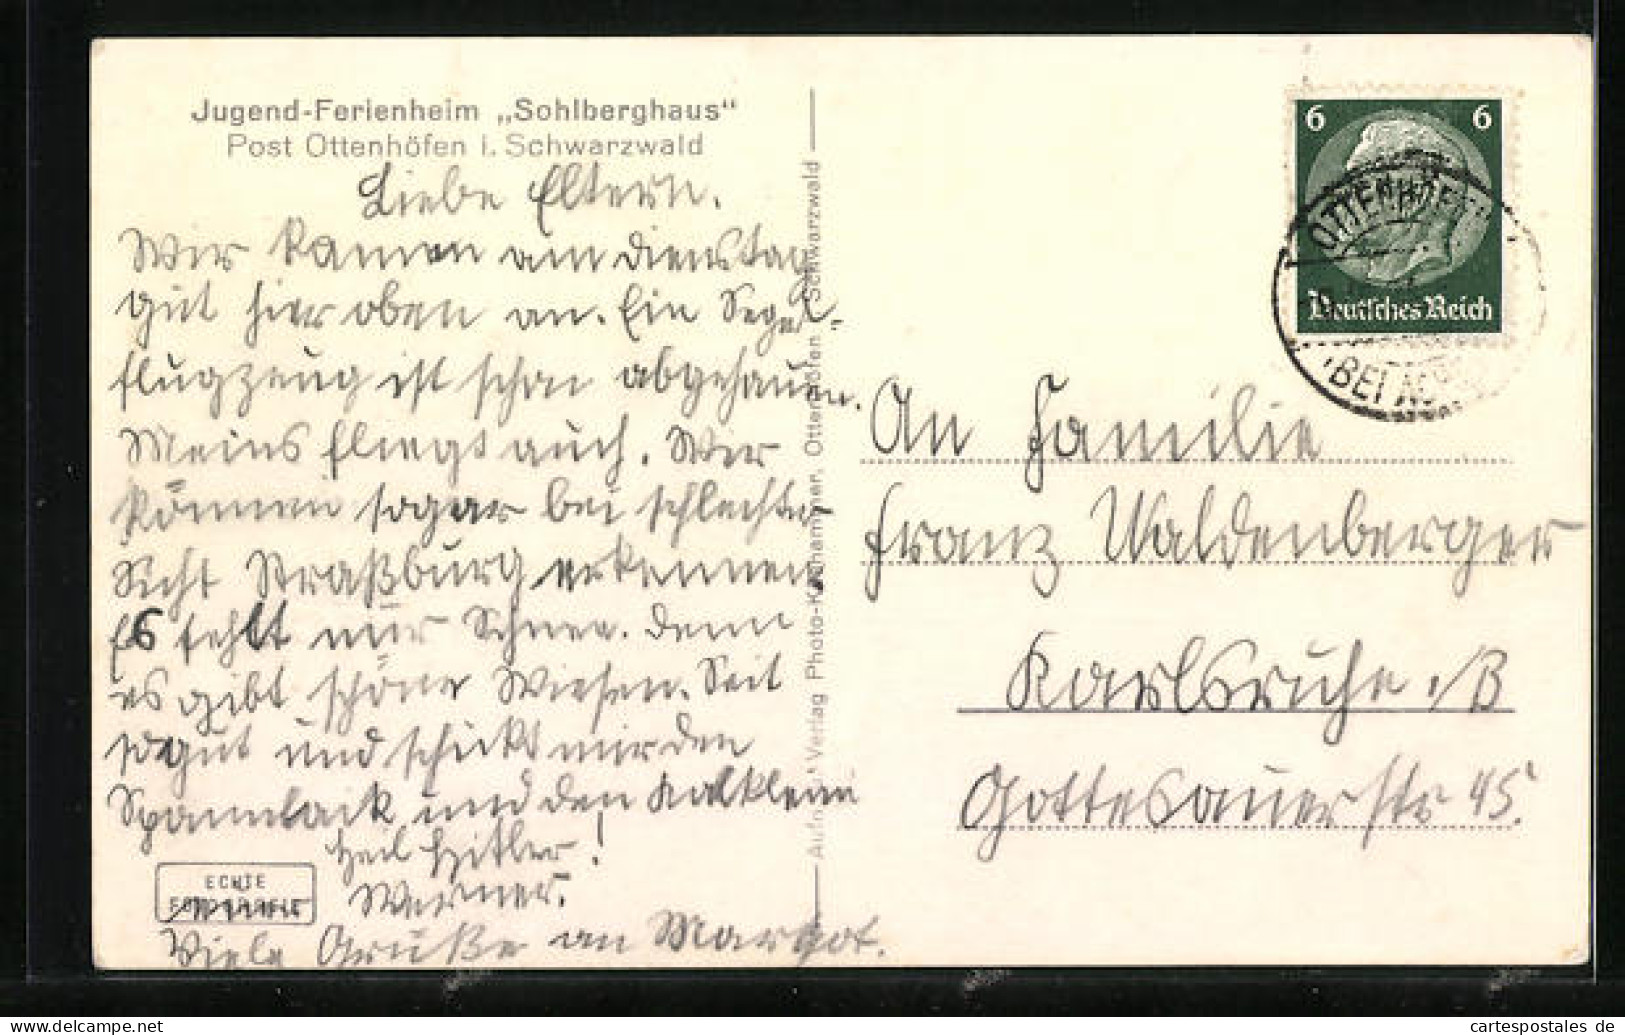 Jugend-Ferienheim „Sohlberghaus"
Post Ottenhöfen i. Schwarzwald
Liebe Eltern.
Wir kamen am dienstag
gut hier oben an. Ein Segel-
flugzeug ist schon abgehauen.
Meins fliegt auch. Wir
können sogar bei schlechter
Sicht Straßburg erkennen
Es fehlt nur Schnee. denn
es gibt schöne Wiesen. Seit
so gut und schickt mir den
Spannlack und den Kaltleim
Heil Hitler!
Werner.
Viele Grüße an Margot.
ECHTE
Aufn. u. Verlag Photo-Kachammer, Ottenhöfen Schwarzwald
6 6
Deutsches Reich
OTTENHÖFEN
BEI
An Familie
Franz Waldenberger
Karlsruhe i/B
Gottesauerstr 45.
cartespostales de